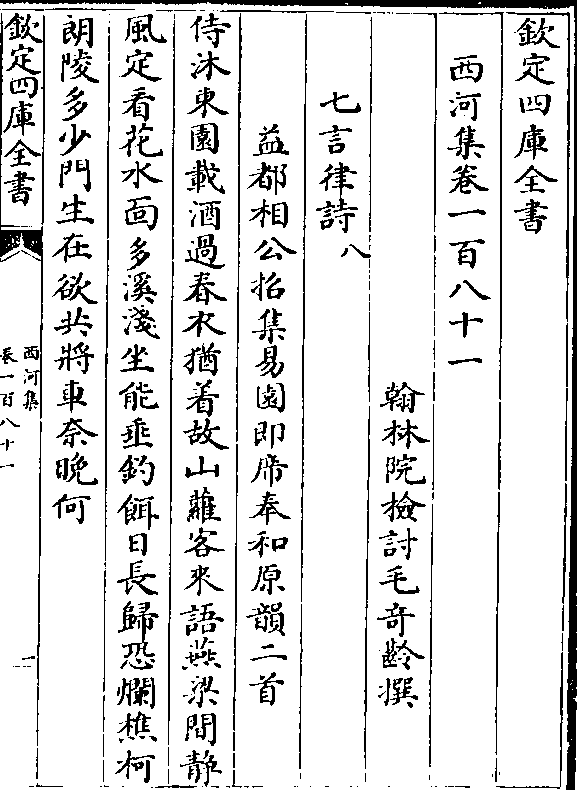 欽定四庫全書
西河集卷一百八十一
翰林院檢討毛奇齡撰
七言律詩八
益都相公招集易園即席奉和原韻二首
侍沐東園載酒過春衣猶着故山蘿客來語燕梁間静
風定看花水面多溪淺坐能垂釣餌日長歸恐爛樵柯
朗陵多少門生在欲共將車奈晚何
欽定四庫全書
西河集
卷一百八十一
一